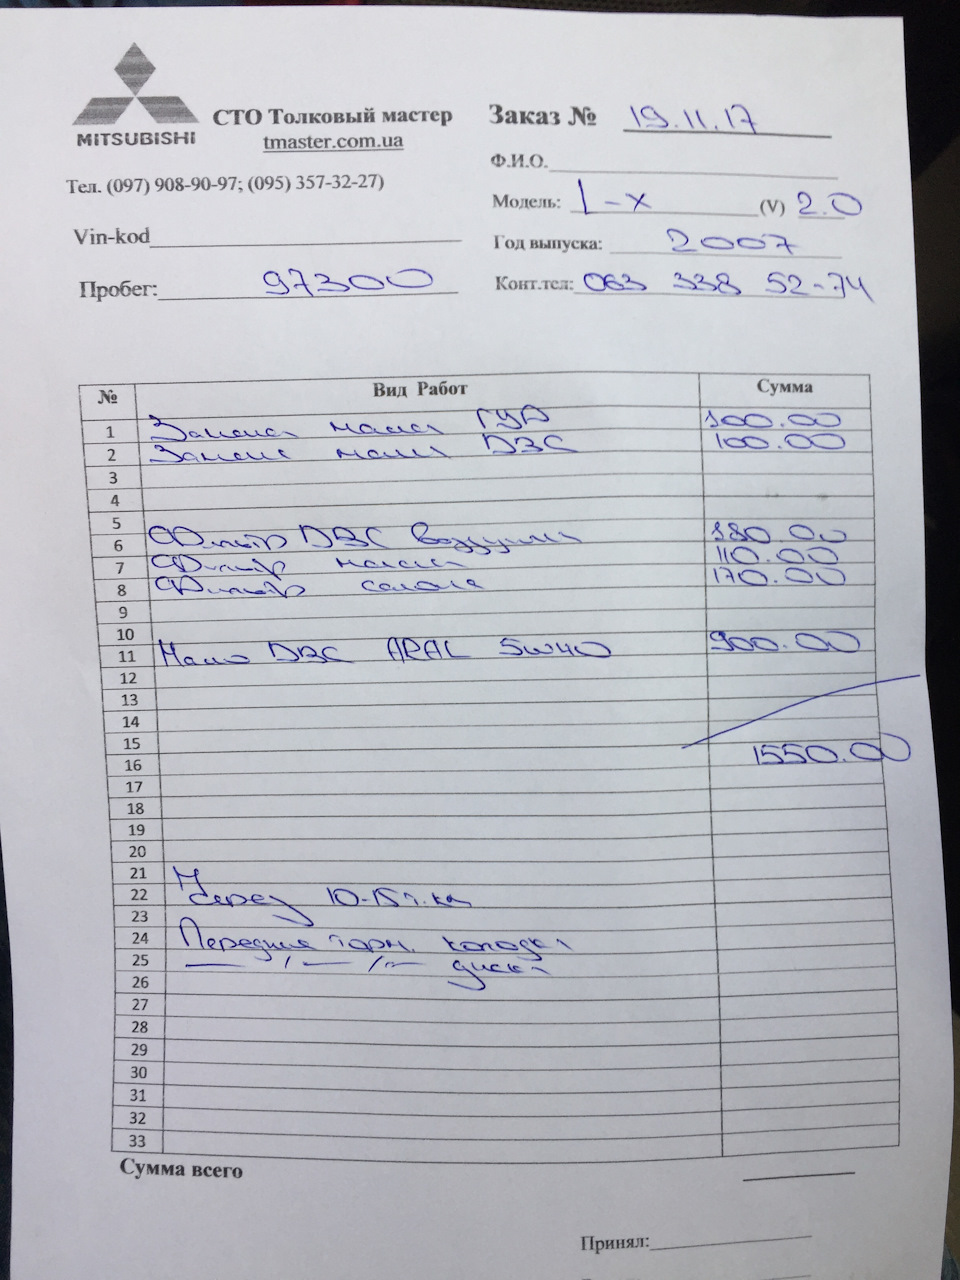 MITSUBISHI
СТО Толковый мастер
tmaster.com.ua
Тел. (097) 908-90-97; (095) 357-32-27)
Vin-kod
Пробег: 97300
Заказ № 19.11.17
Ф.И.О.
Модель: L-X (V) 2.0
Год выпуска: 2007
Конт.тел: 063 338 52-74
№ Вид Работ Сумма
1 Замена масла ГУР 100.00
2 Замена масла ДВС 100.00
3
4
5
6 Фильтр ДВС воздушн 180.00
7 Фильтр масла 110.00
8 Фильтр салона 170.00
9
10
11 Масло ДВС ARAL 5W40 900.00
12
13
14
15
16 1550.00
17
18
19
20
21
22 Через 10-15 т.км
23
24 Передние торм. колодки
25 —— / —— / —— диски
26
27
28
29
30
31
32
33
Сумма всего
Принял: